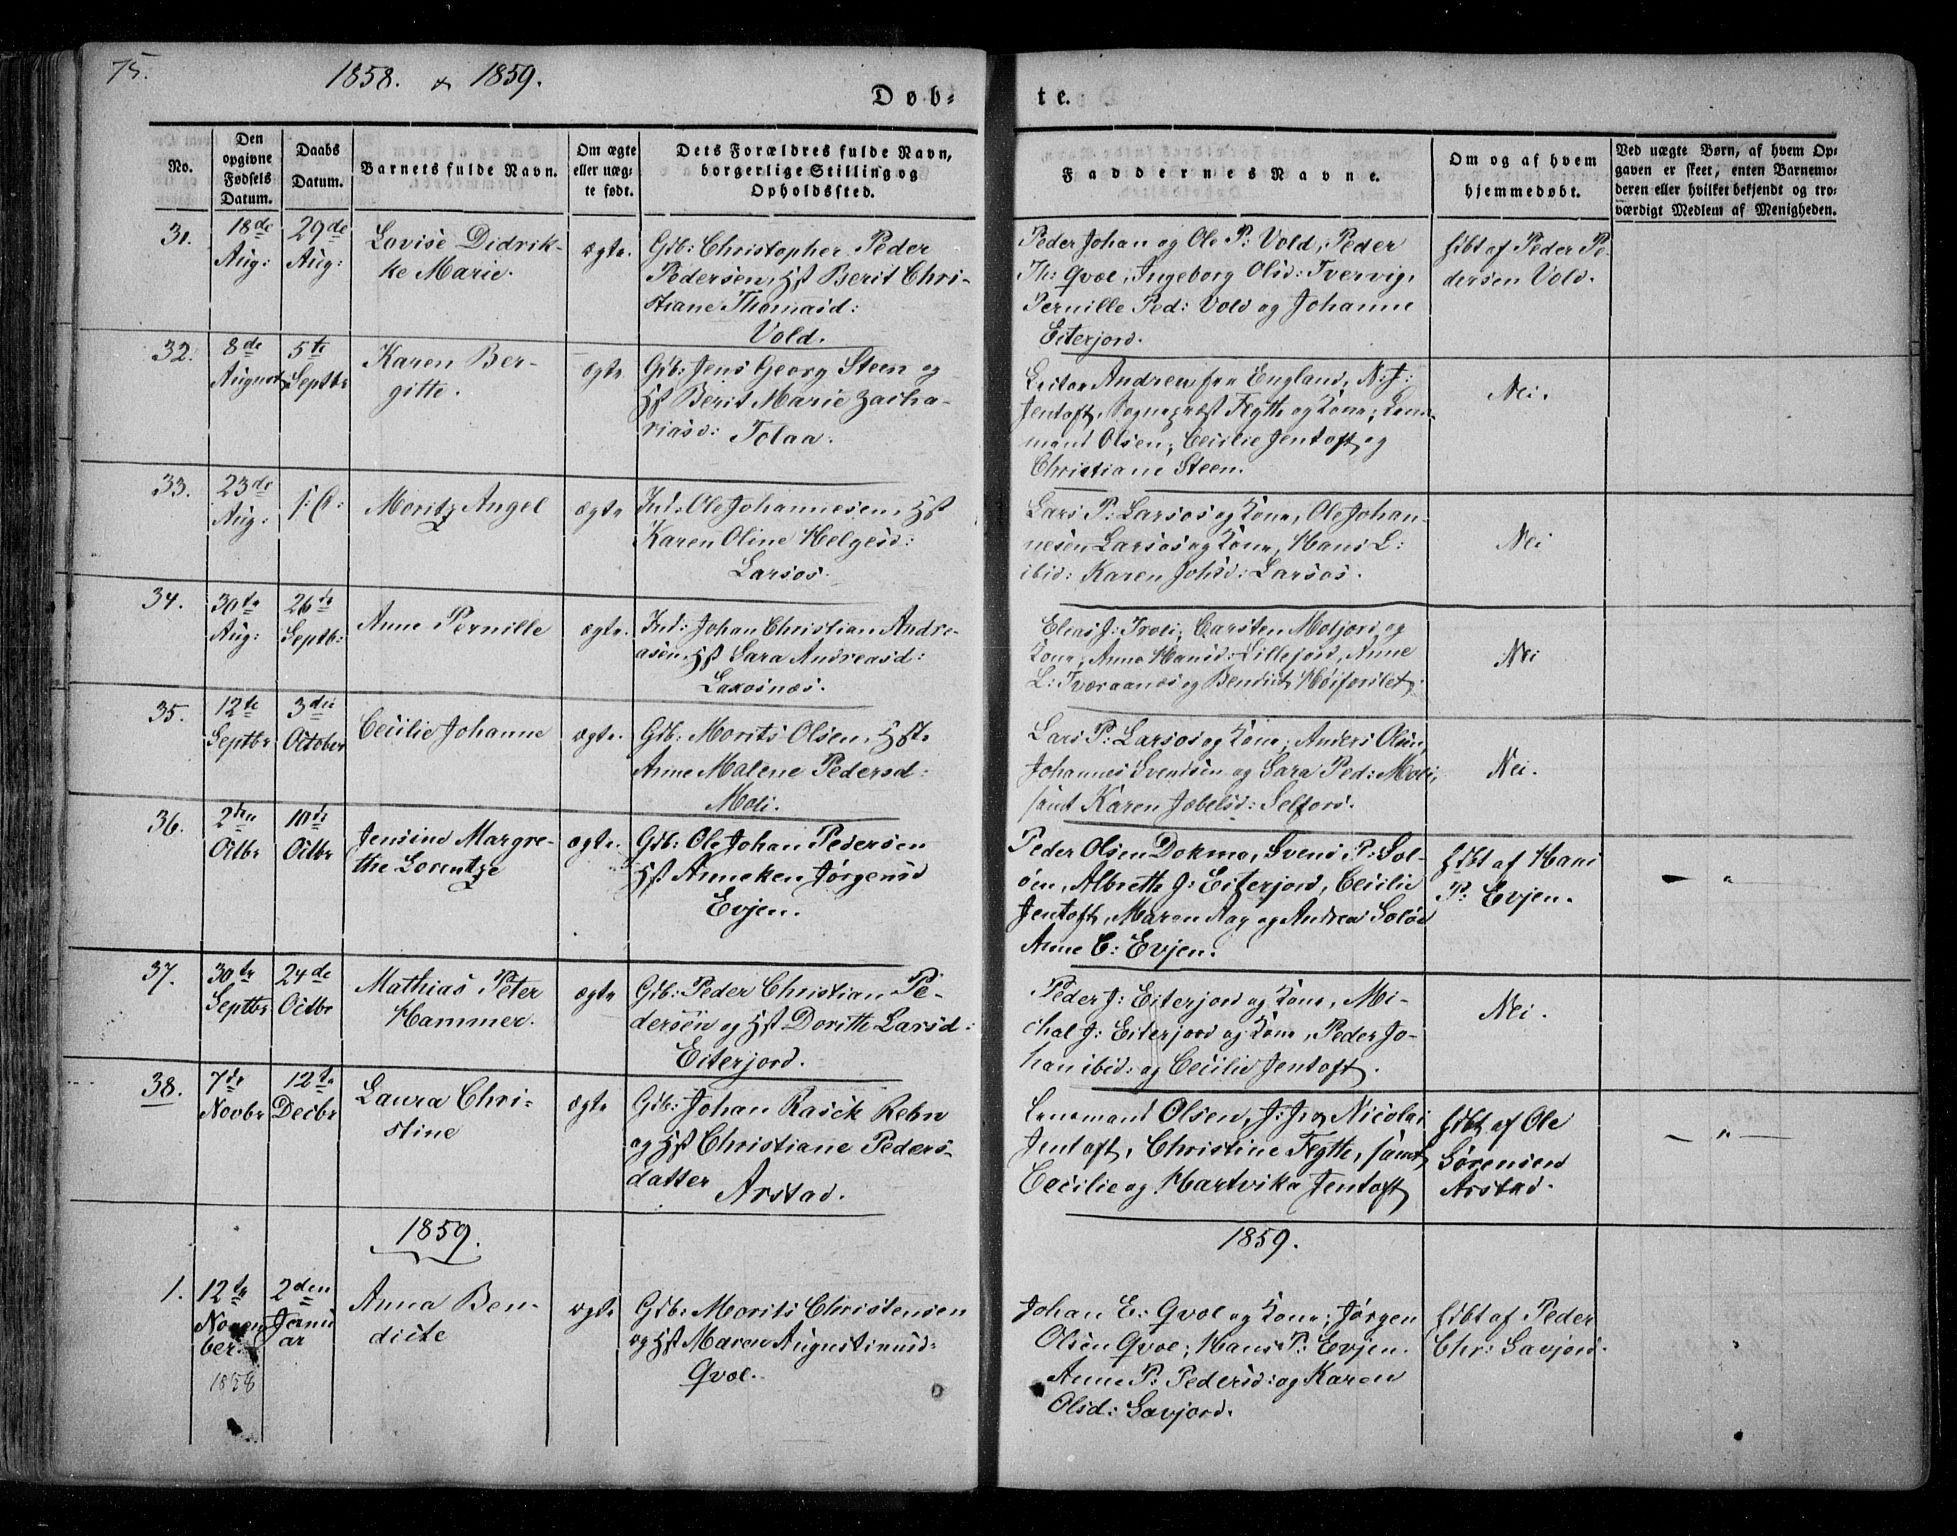 75.
1858. & 1859.
Døb-
te.
No.
Den opgivne Fødsels Datum.
Daabs Datum.
Barnets fulde Navn.
Om ægte eller uægte født.
Dets Forældres fulde Navn, borgerlige Stilling og Opholdssted.
Faddernes Navne.
Om og af hvem hjemmedøbt.
Ved uægte Børn, af hvem Opgaven er skeet, enten Barnemoderen eller hvilket bekjendt og troværdigt Medlem af Menigheden.
31.
18de Aug:
29de Aug:
Lovise Didrik-
ke Marie.
ægte.
Gdb: Christopher Peder
Pedersen, Hst Berit Chri-
stiane Thomasd:
Vold.
Peder Johan og Ole P: Vold, Peder
Th: Qvæl, Ingeborg Olsd: Tvervig,
Pernille Ped: Vold og Johanne
Eiterjord.
hdbt af Peder Pe-
dersen Vold.
32.
8de August
5te Septbr
Karen Ber-
gitte.
ægte
Gdb: Jens Georg Steen og
Hst Berit Marie Zacha-
riasd: Tolaa.
Andrew fra England, N: J:
Jentoft, Sognepræst Flytte og Kone, Len-
mand Olsen, Cecilie Jentoft og
Christiane Steen.
Nei.
33.
23de Aug:
Moritz Angel
ægte
Ind: Ole Johannesen, Hst
Karen Oline Helgesd:
Larsos.
Lars P: Larsos og Kone, Ole Johan-
nesen Larsos og Kone, Hans L:
ibid: Karen Johsd: Larsos.
Nei
34.
30te Aug:
26de Septb:
Anne Pernille
ægte.
Ind: Johan Christian Andre-
asen, Hst Sara Andreasd:
Laxosnæs.
Elias J: Troli, Carsten Moljord og
Kone, Anne Hansd: Lillejord, Anne
L: Tværaanæs og Bendict
Nei
35.
12te Septbr
3die October
Cecilie Johanne
ægte.
Gdb: Morits Olsen, Hst.
Anne Malene Pedersd:
Moli.
Lars P: Larsos og Kone, Anders Olsen,
Johannes Svendsen og Sara Ped: Moli,
samt Karen Jobelsd: Selfors.
Nei.
36.
2den Octbr
10de Octbr
Jensine Margre-
the Lorentze
ægte.
Gdb: Ole Johan Pedersen
Hst Anneken Jørgensd
Evjen.
Peder Olsen Dokmo, Svend P: Sol-
øen, Albrette J: Eiterjord, Cecilie
Jentoft, Maren Aag og Andrea Soløen
Anne C: Evjen.
hdbt af Hans
P: Evjen.
— " —
37.
30te Septbr
24de Octbr
Mathias Peter
Hammer.
ægte
Gdb: Peder Christian Pe-
dersen og Hst Dorithe Larsd:
Eiterjord.
Peder J: Eiterjord og Kone, Mi-
chal J: Eiterjord og Kone, Peder Jo-
han ibid: og Cecilie Jentoft.
Nei.
38.
7de Novbr
12te Decbr
Laura Chri-
stine
ægte
Gdb: Johan Rasck Rehn
og Hst Christiane Peders-
datter Arstad.
Lensmand Olsen, J: J: og Nicolai
Jentoft, Christine Flytte, samt
Cecilie og Hartvika Jentoft
hdbt af Ole
Sørensen
Arstad.
— " —
1859.
1859.
1.
12te November
1858
2den Januar
Anna Ben-
dicte
ægte
Gdb: Morits Christensen
og Hst Maren Augustinusd:
Qvæl.
Johan E: Qvæl og Kone, Jørgen
Olsen Qvæl, Hans P: Evjen.
Anne P: Pedersd: og Karen
Olsd: Savjord.
hdbt af Peder
Chr: Savjord.
"